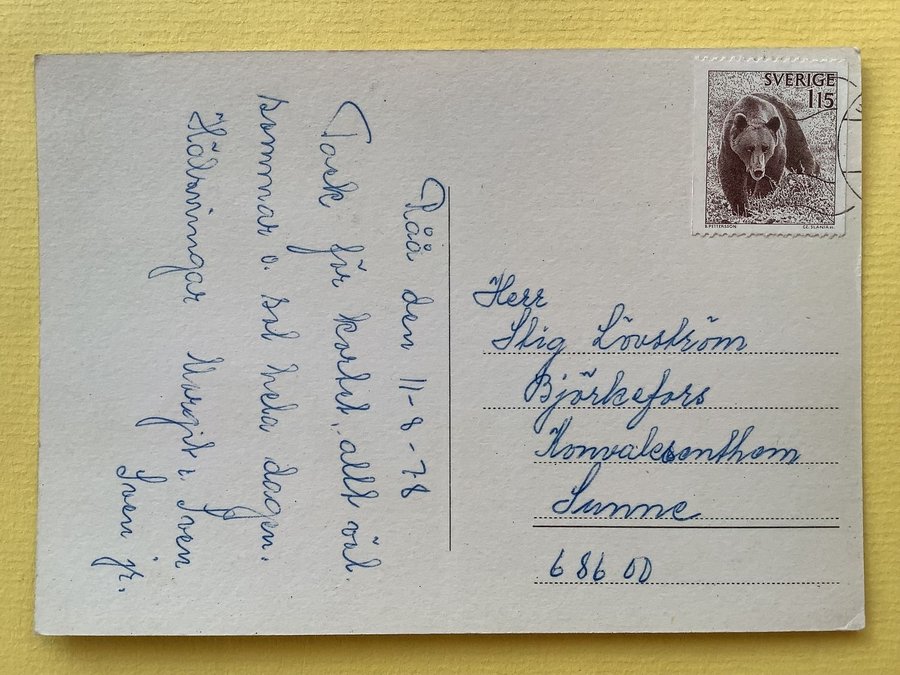 Råå den 11-8-78
Tack för kortet, allt väl.
sommar o. sol hela dagen.
Hälsningar Margit, Sven
Sven jr.
SVERIGE
115
B. PETTERSSON
CZ. SLANIA sc.
Herr
Stig Lövström
Björkefors
Konvalesenthem
Sunne
686 00